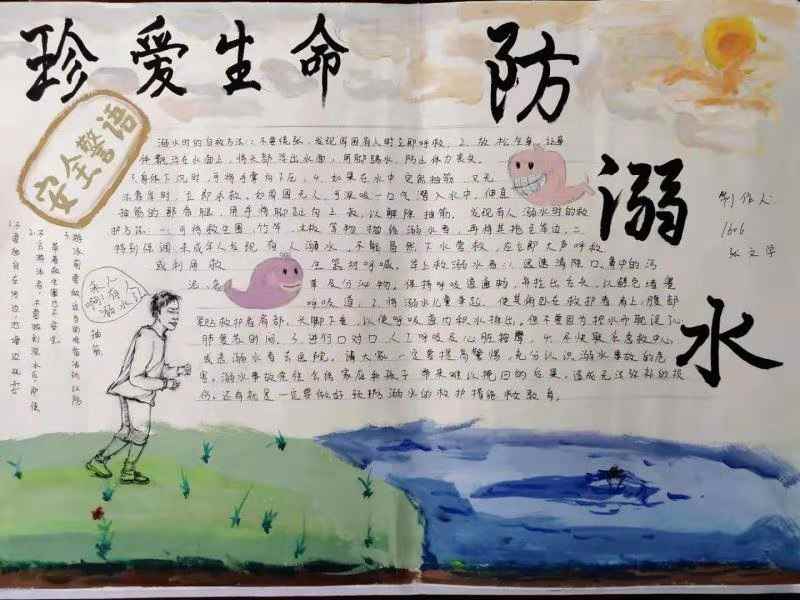 珍爱生命
防溺水
安全警语
制作人:
1606
溺水时的自救方法:1.不要慌张,发现周围有人时立即呼救,2.放松全身,让身
体飘浮在水面上,将头部浮出水面,用脚踢水,防止体力丧失,
身体下沉时,手将手掌向下压,4.如果在水中突然抽筋,又无
法靠岸时,立即求救。如周围无人,可深吸一口气潜入水中,伸直
抽筋的那有腿,用手将脚趾向上扳,以解除抽筋。发现有人溺水时的救
护方法:1.可将救生圈、竹竿、木板等物抛给溺水者,再将其拖至岸边,二
特别强调未成年人发现有人溺水,不能冒然下水营救,应立即大声呼救
或利用救
生器材呼救。岸上救溺水者:1.迅速清除口、鼻中的污
泥、
草及分泌物。保持呼吸道通畅,并拉出舌头,以避免堵塞
呼吸道;2.将溺水儿童举起,使其俯卧在救护者肩上,腹部
紧贴救护者肩部,头脚下垂,以使呼吸道内积水排出。但不要因为控水而耽误了心
肺复苏时间,3.进行口对口人工呼吸及心脏按摩,4.尽快联系急救中心
或送溺水者去医院。请大家一定要提高警惕,充分认识溺水事故的危
害,溺水事故常往会给家庭和孩子带来难以挽回的后果,造成无法弥补的损
伤,还有就是一定要做好预防溺水的救护措施
来人
啊!有人
溺水了!